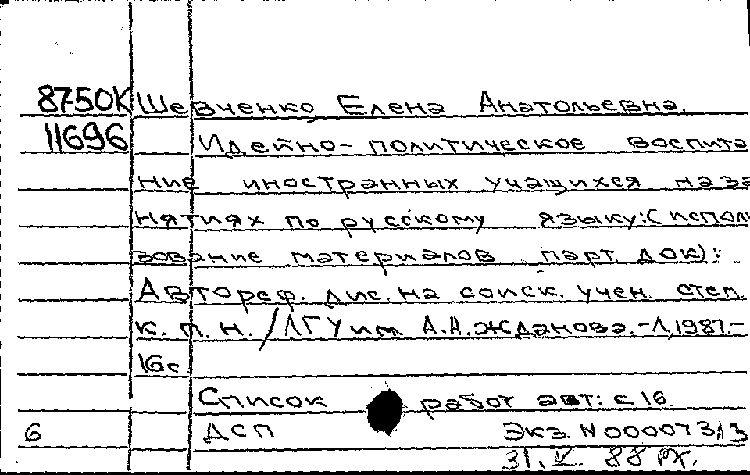 8750К Шевченко Елена Анатольевна.
11696 Идейно-политическое воспита
ние иностранных учащихся на за
нятиях по русскому языку:(исполь
зование материалов парт. док):
Автореф. дис. на соиск. учен. степ.
к. п. н. /ЛГУ им. А.А.Жданова.-Л,1987.-
16с
Список работ авт: с 16
6 ДСП Экз N 000073
31. V. 88